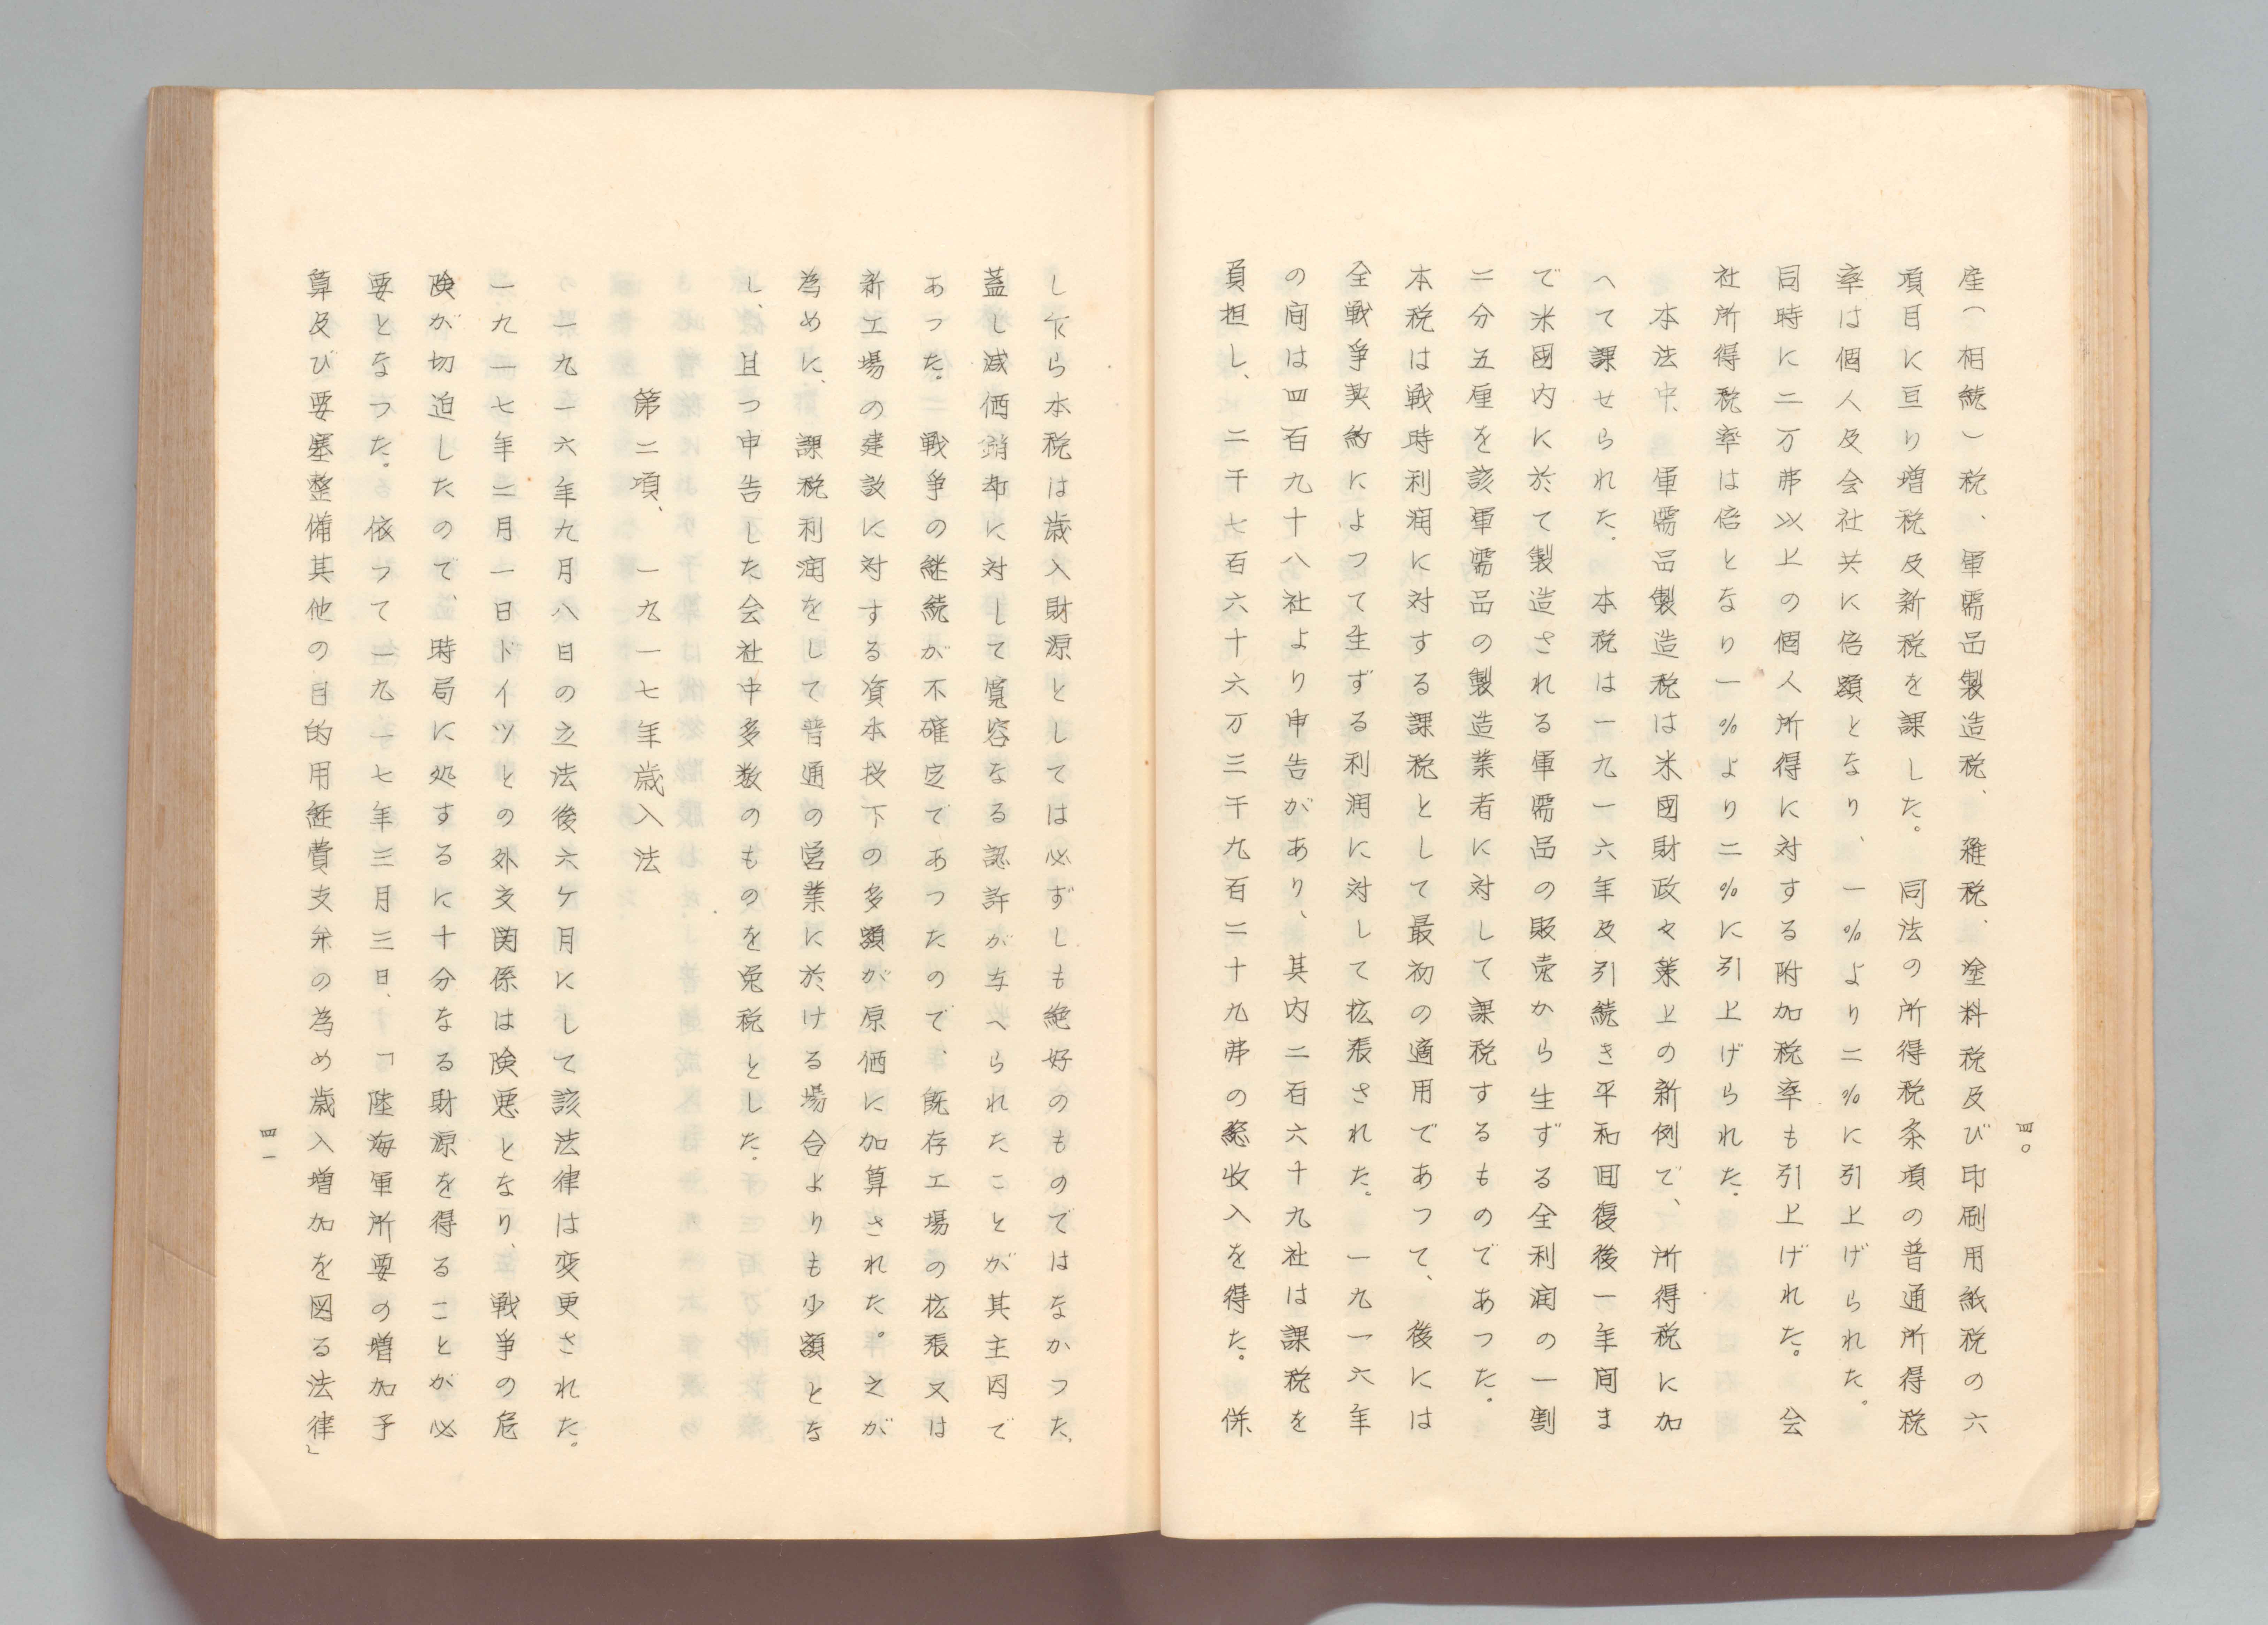 四〇
産(相続)税、軍需品製造税、雑税、塗料税及び印刷用紙税の六
項目に亘り増税及新税を課した。同法の所得税条項の普通所得税
率は個人及会社共に倍額となり、一%より二%に引上げられた。
同時に二万弗以上の個人所得に対する附加税率も引上げれた。会
社所得税率は倍となり一%より二%に引上げられた。
本法中、軍需品製造税は米國財政々策上の新例で、所得税に加
へて課せられた。本税は一九一六年及引続き平和回復後一年間ま
で米國内に於て製造される軍需品の販売から生ずる全利润の一割
二分五厘を該軍需品の製造業者に対して課税するものであつた。
本税は戦時利潤に対する課税として最初の適用であつて、後には
全戦争契約によつて生ずる利潤に対して拡張された。一九一六年
の间は四百九十八社より申告があり、其内二百六十九社は課税を
負担し、二千七百六十六万三千九百二十九弗の総收入を得た。併
し乍ら本税は歳入財源としては必ずしも絶好のものではなかつた、
蓋し減価銷却に対して寛容なる認許が与へられたことが其主因で
あつた。戦争の継続が不確定であつたので、既存工場の拡張又は
新工場の建設に対する資本投下の多額が原価に加算された。之が
為めに、課税利潤をして普通の営業に於ける場合よりも少額とな
し、且つ申告した会社中多数のものを免税とした。
第二項、一九一七年歳入法
一九一六年九月八日の立法後六ケ月にして該法律は変更された。
一九一七年二月一日ドイツとの外交関係は険悪となり、戦争の危
険が切迫したので、時局に処するに十分なる財源を得ることが必
要となつた。依つて一九一七年三月三日、「陸海軍所要の増加予
算及び要塞整備其他の目的用経費支弁の為め歳入増加を図る法律」
四一